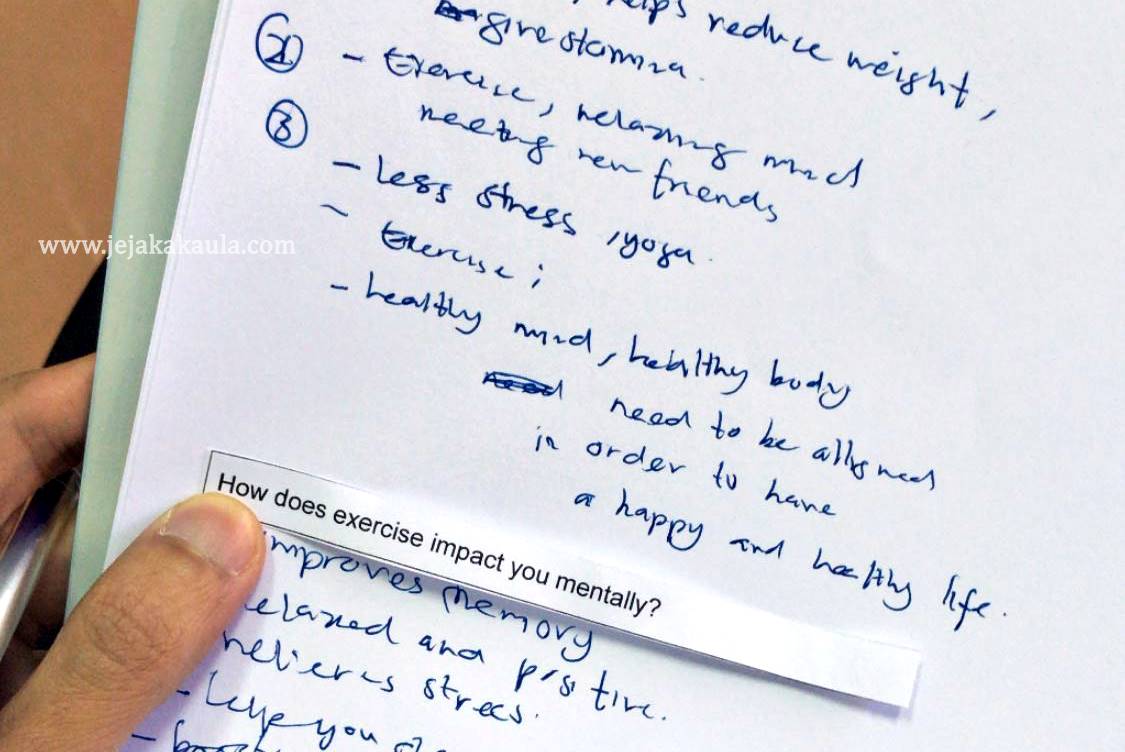 helps reduce weight,
give stamina.
②
- Exercise, relaxing mind
meeting new friends
③
- less stress, yoga.
~ Exercise;
- healthy mind, healthy body
need to be alligned
in order to have
a happy and healthy life.
www.jejakakaula.com
How does exercise impact you mentally?
improves memory
relaxed and positive.
relieves stress.
- you